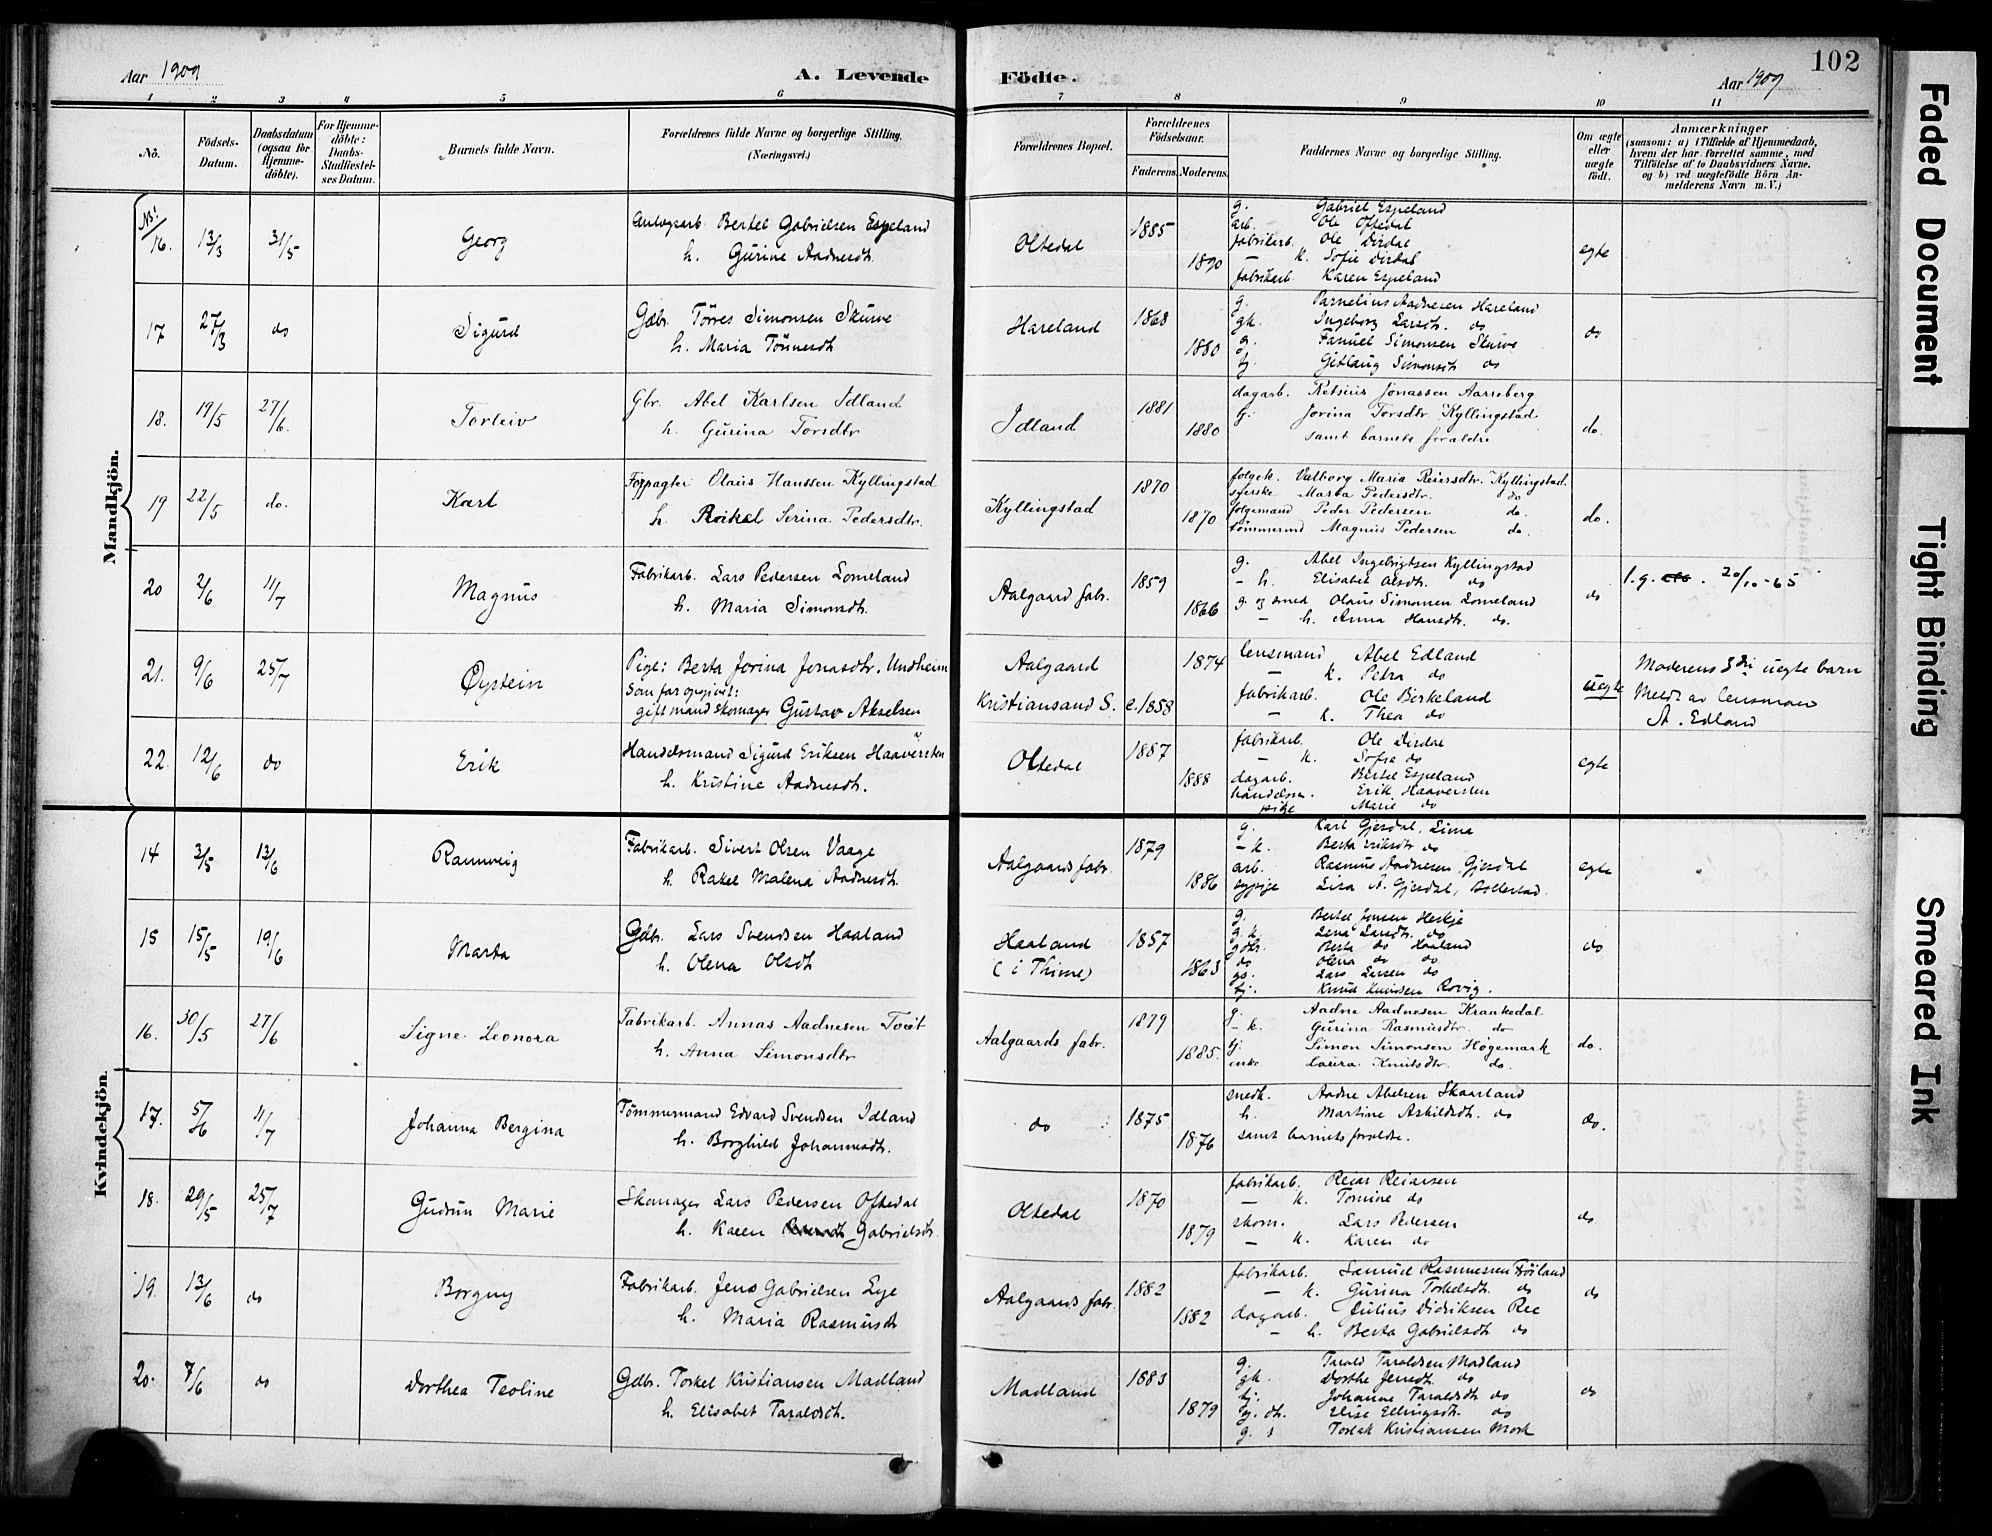 102
Aar 1909
A. Levende Födte.
Aar 1909
1 2 3 4 5 6 7 8 9 10 11
Nô.
Födsels-Datum.
Daabsdatum (ogsaa for Hjemme-döbte).
For Hjemme-döbte: Daabs-Stadfæstel-ses Datum.
Barnets fulde Navn.
Forældrenes fulde Navne og borgerlige Stilling. (Næringsvei.)
Forældrenes Bopæl.
Forældrenes Födselsaar.
Faderens. Moderens.
Faddernes Navne og borgerlige Stilling.
Om ægte eller uægte födt.
Anmærkninger
(saasom: a) i Tilfælde af Hjemmedaab, hvem der har forrettet samme, med Tilföielse af to Daabsvidners Navne. og b) ved uægtefödte Börn An-melderens Navn m. V.)
Mandkjön.
16. 13/3 31/5 Georg
Bertel Gabrielsen Espeland
h. Gurine Aadnesdt.
Oltedal 1885 1890
g. Gabriel Espeland
arb. Ole Oftedal
fabrikarb. Ole Dirdal
— k. Sofie Dirdal
fabrikarb. Karen Espeland
egte
17 27/3 do Sigurd
Gbr. Törres Simonsen Skurve
h. Maria Tönnesdt
Hareland 1868 1880
g. Parnelius Aadnesen Hareland
gk. Ingeborg Larsdt. do
g. Fanuel Simonsen Skurve
tj. Gitlaug Simonsdt do
do
18. 19/5 27/6. Torleiv
Gbr. Abel Karlsen Idland
h. Gurina Torsdtr
Idland 1881 1880
dagarb. Retsius Jonassen Aarreberg
tj. Jorina Torsdtr Kyllingstad.
samt barnets foraldre
do.
19 22/5 do. Karl
Forpagter Olaus Hanssen Kyllingstad
h. Rakel Serina Pedersdtr.
Kyllingstad 1870 1870
folgek. Valborg Maria Reiersdtr. Kyllingstad.
syerske Marta Pedersdtr. do
folgemand Peder Pedersen do.
tömmermd Magnus Pedersen do.
do.
20 2/6 11/7 Magnus
Fabrikarb. Lars Pedersen Lomeland
h. Maria Simonsdt.
Aalgaard fabr. 1859 1866
g. Abel Ingebrigtsen Kyllingstad
— h. Elisabet Olsdt. do
g. og smed Olaus Simonsen Lomeland
— h. Anna Hansdt. do.
do
l.g. 20/10-65
21. 9/6 25/7 Øystein
Pige: Berta Jorina Jonasdtr. Undheim
Som far opgivet:
gift mand skomager Gustav Akselsen
Aalgaard 1874
Kristiansand S. c.1858
lensmand Abel Edland
— k. Petra do
fabrikarb. Ole Birkeland
— k. Thea do
uegte
Moderens 3die uegte barn
Meldt av lensman
A. Edland
22. 12/6 do Erik
Handelsmand Sigurd Eriksen Haaversten
h. Kristine Aadnesdt.
Oltedal 1887 1888
fabrikarb. Ole Dirdal
— k. Sofie do
dagarb. Bertel Espeland
handelsm. Erik Haaversten
pike Marie do
egte
Kvindekjön.
14 3/5 13/6 Rannveig
Fabrikarb. Sivert Olsen Vaage
h. Rakel Malena Aadnesdt.
Aalgaards fabr. 1879 1886
g. Karl Gjesdal, Lima
— k. Berta Eriksdt do
arb. Rasmus Aadnesen Gjesdal
sypige Lisa A. Gjesdal,
egte
15 15/5 19/6 Marta
Gdbr. Lars Svendsen Haaland
h. Olena Olsdt
Haaland
(i Thime) 1857 1863
g. Bertel Jonsen Heskje
g.k. Lena Larsdt. do
gdtr. Berta do Haaland
do Olena do do
gs. Lars Larsen do
tj. Knud Knudsen Rovig.
do
16. 30/5 27/6 Signe Leonora
Fabrikarb. Annas Aadnesen Tveit
h. Anna Simonsdtr
Aalgaards fabr. 1879 1885.
g. Aadne Aadnesen Kraakedal
— k. Gurina Rasmusdtr. do
tj. Simon Simonsen Högemark
enke Laura Knutsdtr do.
do.
17. 5/6 11/7 Johanna Bergina
Tömmermand Edvard Svendsen Idland
h. Borghild Johannesdt.
do 1875 1876
snedk. Aadne Abelsen Skaarland
h. Martine Askildsdt. do
samt barnets foraldre.
do.
18. 29/5 25/7 Gudrun Marie
Skomager Lars Pedersen Oftedal
h. Karen Gabrielsdt.
Oltedal 1870 1879
fabrikarb. Reiar Reiarsen
— k. Tomine do
skom. Lars Pedersen
— k. Karen do
do
19. 13/6 do Borgny
Fabrikarb. Jens Gabrielsen Lye
h. Maria Rasmusdt
Aalgaards fabr. 1882 1882
fabrikarb. Samuel Rasmussen Fröiland
— k. Gurina Torkelsdt. do
dagarb. Julius Didriksen Ree
— h. Berta Gabrielsdt. do
do
20. 7/6 do Dorthea Teoline
Gdbr. Torkel Kristiansen Madland
h. Elisabet Taraldsdt.
Madland 1883 1879
g. Tarald Taraldsen Madland
gk. Dorthe Jensdt do
tj. Johanne Taraldsdt do
g. dt. Elise Ellingsdt. do
g. s Torleik Kristiansen Mork
do
Faded Document
Tight Binding
Smeared Ink